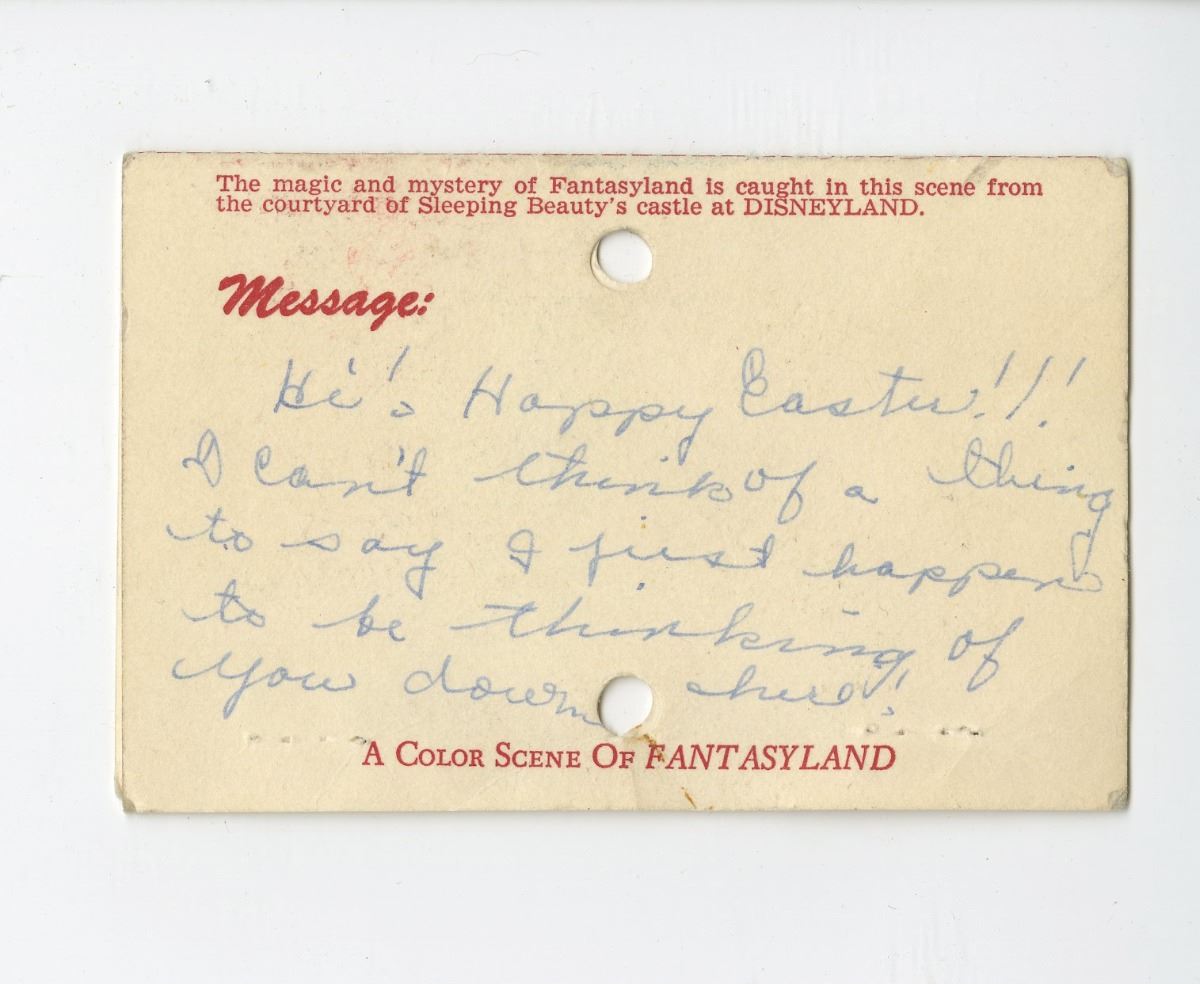 The magic and mystery of Fantasyland is caught in this scene from
the courtyard of Sleeping Beauty's castle at DISNEYLAND.
Message:
Hi! Happy Easter!!!
I can't think of a thing
to say I just happen
to be thinking of
you down here!
A COLOR SCENE OF FANTASYLAND